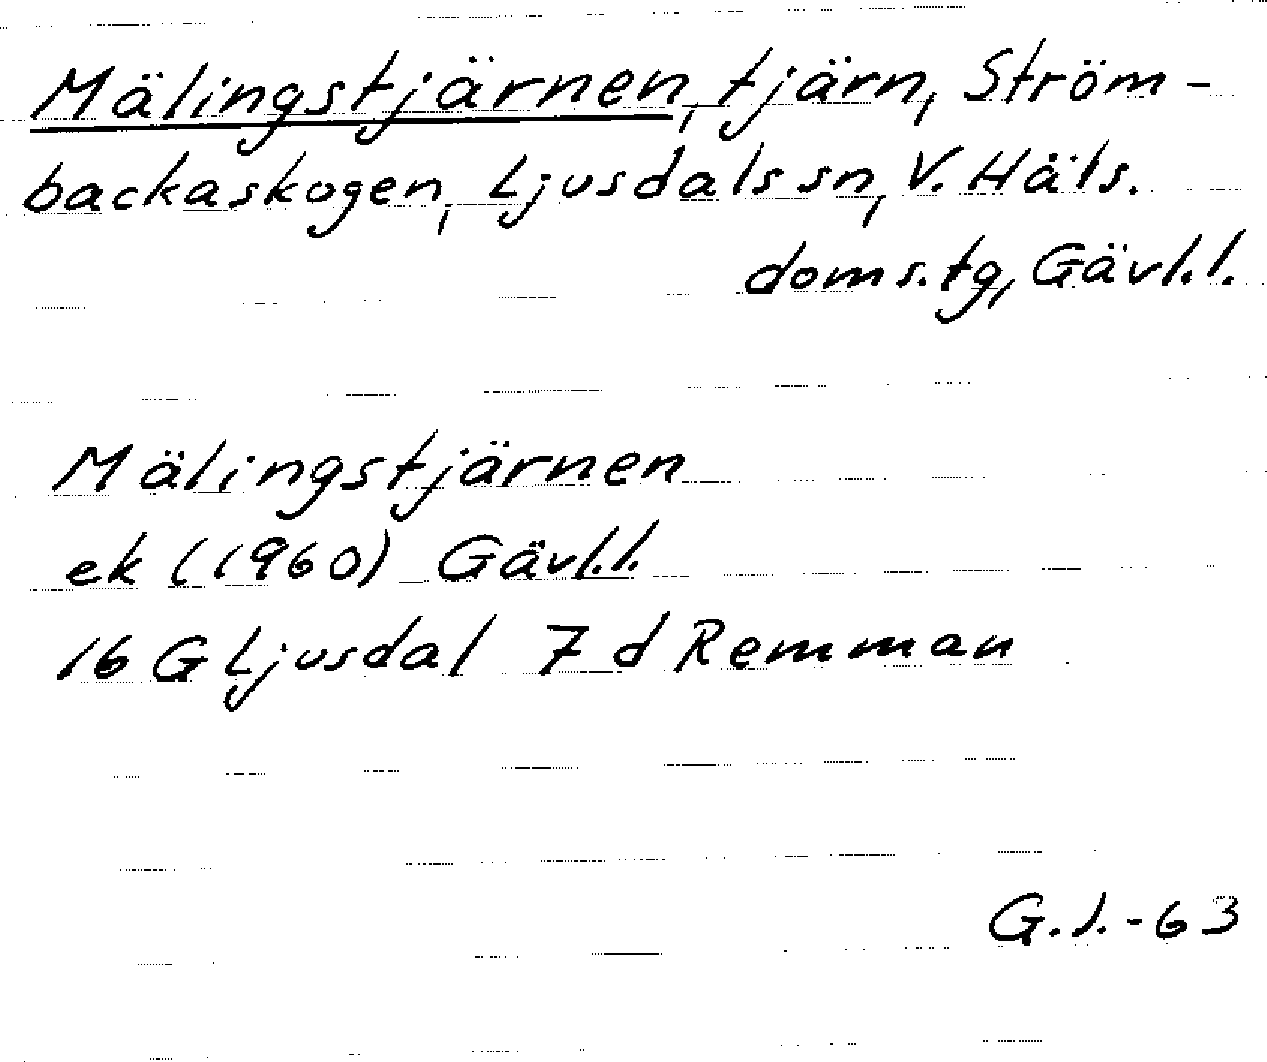 Mälingstjärnen, tjärn, Ström-
backaskogen, Ljusdals sn, V. Häls.
doms.tg, Gävl.l.
Mälingstjärnen
ek (1960) Gävl.l.
16 G Ljusdal 7 d Remman
G.J.-63